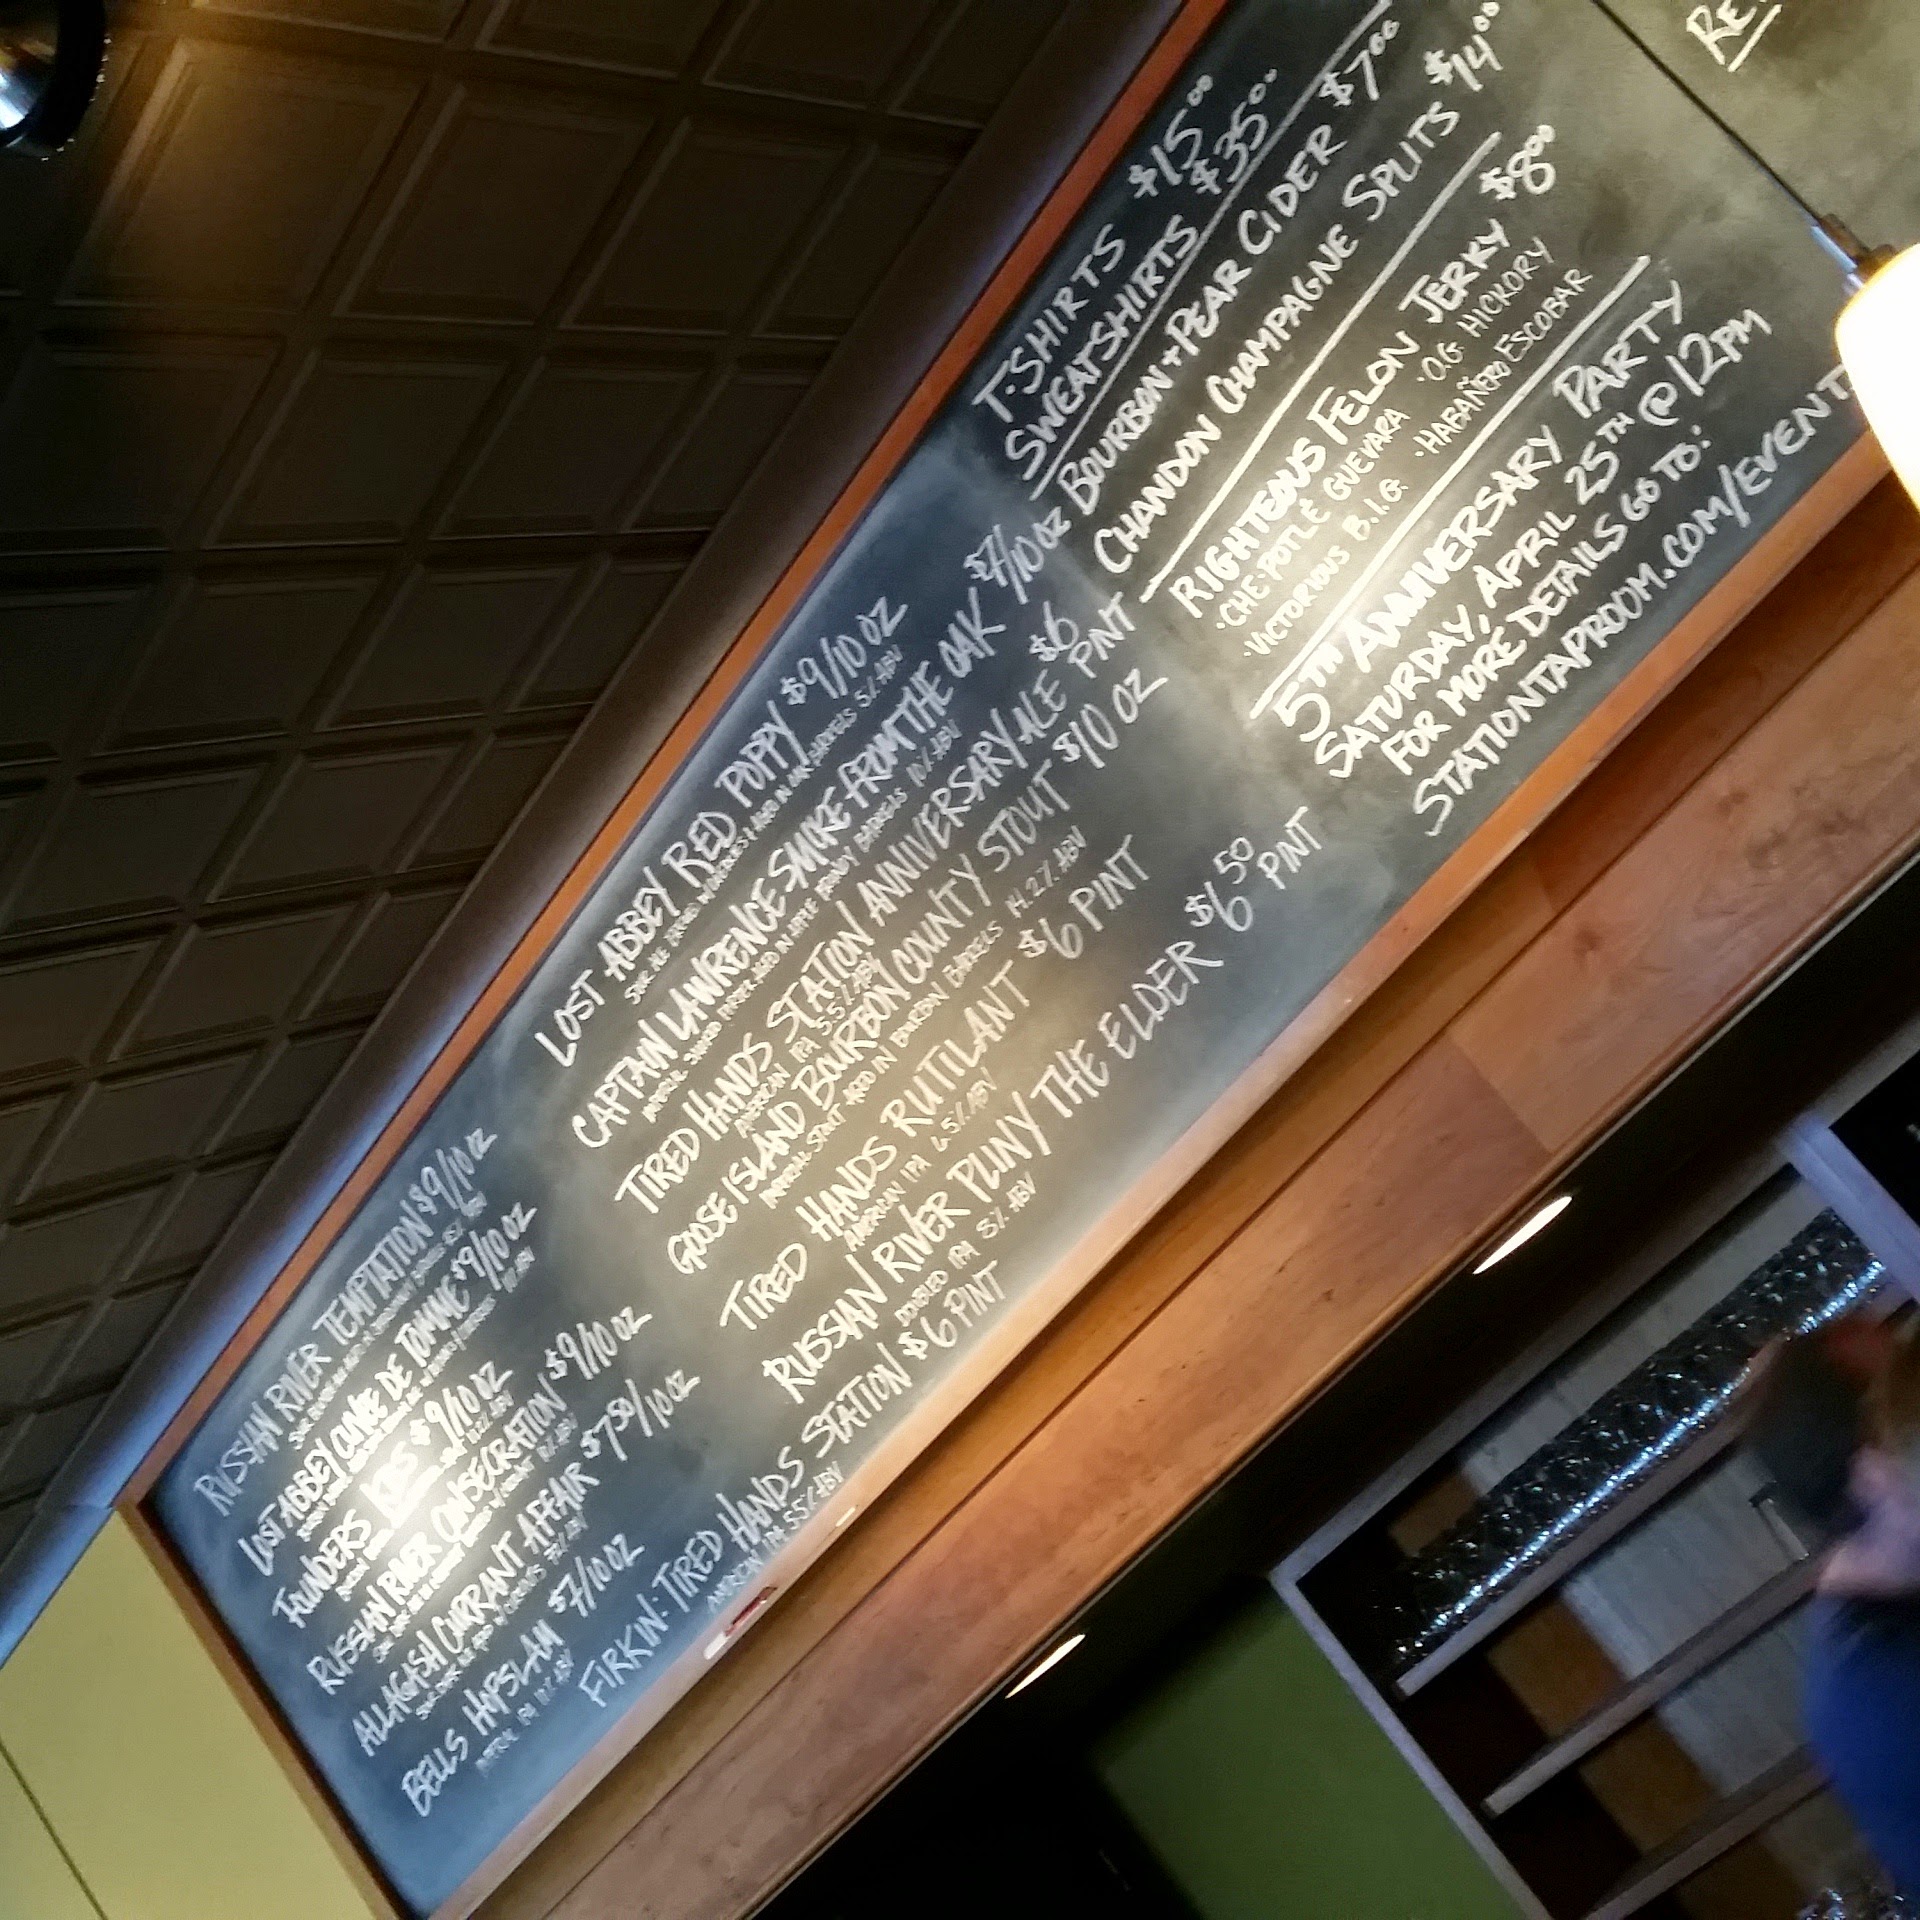 RUSSIAN RIVER TEMPTATION $9/10 OZ
LOST ABBEY CUVEE DE TOMME $9/10 OZ
FOUNDERS KBS $9/10 OZ
RUSSIAN RIVER CONSECRATION $9/10 OZ
ALLAGASH CURRANT AFFAIR $7 50/10 OZ
BELLS HOPSLAM $7/10 OZ
LOST ABBEY RED POPPY $9/10 OZ
CAPTAIN LAWRENCE SMOKE FROM THE OAK $7/10 OZ
TIRED HANDS STATION ANNIVERSARY ALE $6 PINT
AMERICAN IPA 5.5% ABV
GOOSE ISLAND BOURBON COUNTY STOUT $10 OZ
IMPERIAL STOUT AGED IN BOURBON BARRELS 14.2% ABV
TIRED HANDS RUTILANT $6 PINT
AMERICAN IPA 6.5% ABV
RUSSIAN RIVER PLINY THE ELDER $6 50 PINT
DOUBLE IPA 8% ABV
FIRKIN: TIRED HANDS STATION $6 PINT
AMERICAN IPA 5.5% ABV
T-SHIRTS $15 00
SWEATSHIRTS $35 00
BOURBON + PEAR CIDER $7 00
CHANDON CHAMPAGNE SPLITS $14 00
RIGHTEOUS FELON JERKY $8 00
· CHE-POTLE GUEVARA · O.G. HICKORY
· VICTORIOUS B.I.G. · HABAÑERO ESCOBAR
5TH ANNIVERSARY PARTY
SATURDAY, APRIL 25TH @ 12PM
FOR MORE DETAILS GO TO:
STATIONTAPROOM.COM/EVENT